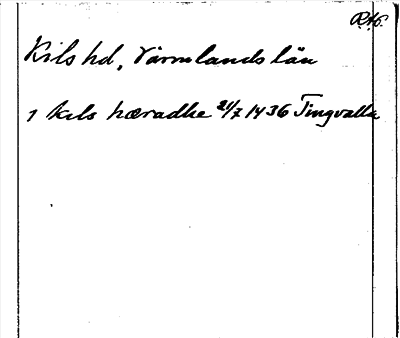 RAp.
Kils hd, Värmlands län
1 kils hæradhe 21/7 1436 Tingvalla